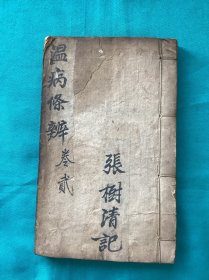 温病條辨
卷貳
張樹清記